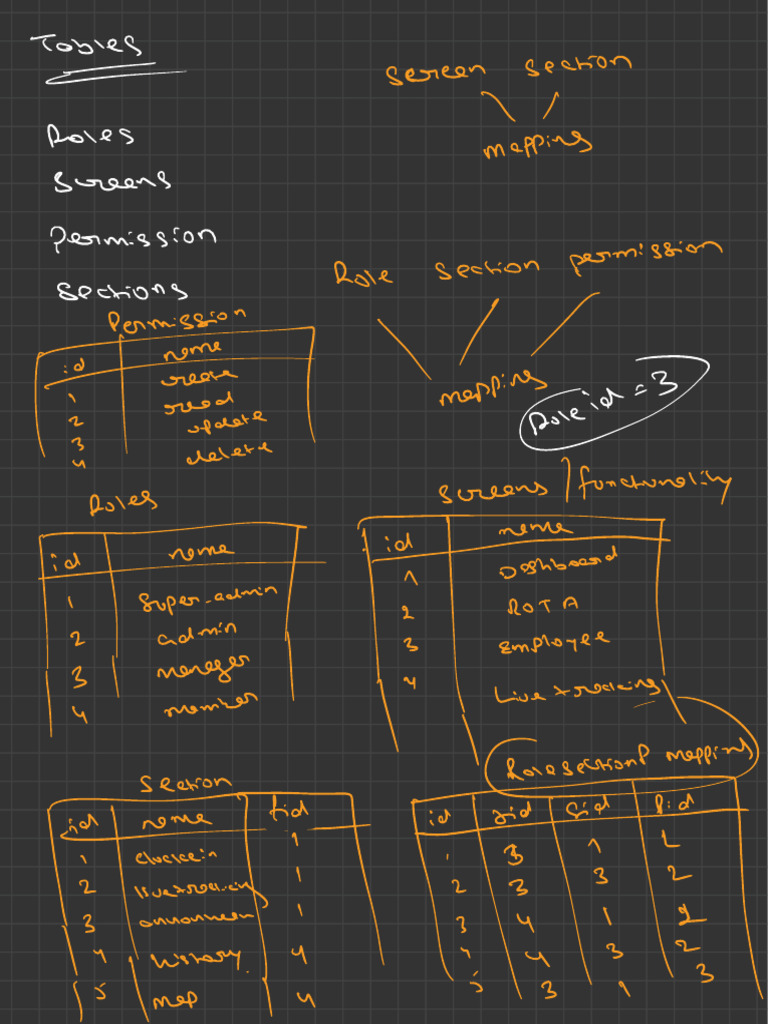 Tables
Roles
Screens
Permission
Sections
Screen section
mapping
Role section permission
mapping
Role id = 3
Permission
id name
1 create
2 read
3 update
4 delete
Roles
id name
1 Super-admin
2 admin
3 manager
4 member
Screens / functionality
id name
1 Dashboard
2 ROTA
3 Employee
4 Live tracking
Section
id name fid
1 clockin 1
2 livetracking 1
3 1
4 history 4
5 map 4
RolesectionP mapping
id Sid Pid
1 3 1 2
2 3 3 2
3 4 1 2
4 4 3 2
5 3 1 3